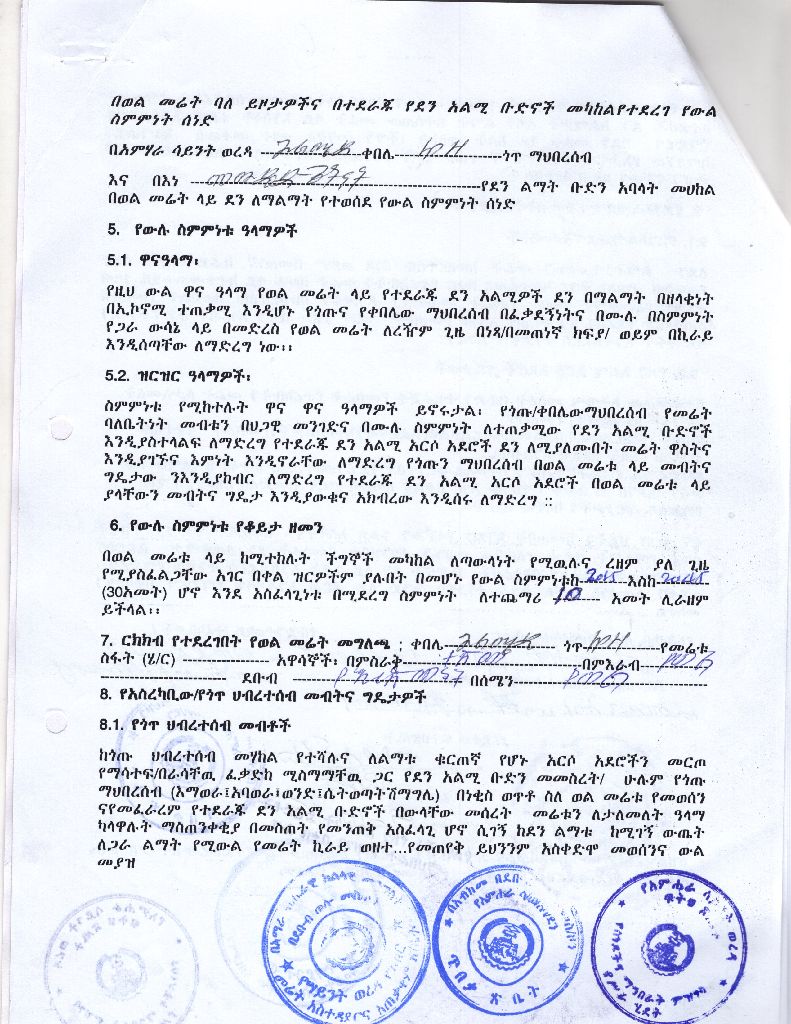 በወል መሬት ባለ ይዞታዎችና በተደራጁ የደን አልሚ ቡድኖች መካከልየተደረገ የውል
ስምምነት ሰነድ
በአምሃራ ሳይንት ወረዳ ---ቀበሌ------ጎጥ ማህበረሰብ
እና በእነ ------የደን ልማት ቡድን አባላት መሀከል
በወል መሬት ላይ ደን ለማልማት የተወሰደ የውል ስምምነት ሰነድ
5. የውሉ ስምምነቱ ዓላማዎች
5.1. ዋናዓላማ፡
የዚህ ውል ዋና ዓላማ የወል መሬት ላይ የተደራጁ ደን አልሚዎች ደን በማልማት በዘላቂነት
በኢኮኖሚ ተጠቃሚ እንዲሆኑ የጎጡና የቀበሌው ማህበረሰብ በፈቃደኝነትና በሙሉ በስምምነት
የጋራ ውሳኔ ላይ በመድረስ የወል መሬት ለረዥም ጊዜ በነጻ/በመጠነኛ ክፍያ/ ወይም በኪራይ
እንዲሰጣቸው ለማድረግ ነው፡፡
5.2. ዝርዝር ዓላማዎች፡
ስምምነቱ የሚከተሉት ዋና ዋና ዓላማዎች ይኖሩታል፡ የጎጡ/ቀበሌውማህበረሰብ የመሬት
ባለቤትነት መብቱን በህጋዊ መንገድና በሙሉ ስምምነት ለተጠቃሚው የደን አልሚ ቡድኖች
እንዲያስተላልፍ ለማድረግ የተደራጁ ደን አልሚ አርሶ አደሮች ደን ለሚያለሙበት መሬት ዋስትና
እንዲያገኙና እምነት እንዲኖራቸው ለማድረግ የጎጡን ማህበረሰብ በወል መሬቱ ላይ መብትና
ግዴታው ንእንዲያከብር ለማድረግ የተደራጁ ደን አልሚ አርሶ አደሮች በወል መሬቱ ላይ
ያላቸውን መብትና ግዴታ እንዲያውቁና አክብረው እንዲሰሩ ለማድረግ ::
6. የውሉ ስምምነቱ የቆይታ ዘመን
በወል መሬቱ ላይ ከሚተከሉት ችግኞች መካከል ለጣውላነት የሚዉሉና ረዘም ያለ ጊዜ
የሚያስፈልጋቸው አገር በቀል ዝርዎችም ያሉበት በመሆኑ የውል ስምምነቱከ እስከ
(30አመት) ሆኖ እንደ አስፈላጊነቱ በሚደረግ ስምምነት ለተጨማሪ 10 አመት ሊራዘም
ይችላል፡፡
7. ርክክብ የተደረገበት የወል መሬት መግለጫ : ቀበሌ ጎጥ የመሬቱ
ስፋት (ሄ/ር) ---------------- አዋሳኞች፡ በምስራቅ በምእራብ
ደቡብ በሰሜን
8. የአስረካቢው/የጎጥ ህብረተሰብ መብትና ግዴታዎች
8.1. የጎጥ ህብረተሰብ መብቶች
ከጎጡ ህብረተሰብ መሃከል የተሻሉና ለልማቱ ቁርጠኛ የሆኑ አርሶ አደሮችን መርጦ
የማሳተፍ/በራሳቸዉ ፈቃድከ ሚስማማቸዉ ጋር የደን አልሚ ቡድን መመስረት/ ሁሉም የጎጡ
ማህበረሰብ (እማወራ፤አባወራ፤ወንድ፤ሴትወጣትሽማግሌ) በነቂስ ወጥቶ ስለ ወል መሬቱ የመወሰን
ናየመፈራረም የተደራጁ ደን አልሚ ቡድኖች በውላቸው መሰረት መሬቱን ለታለመለት ዓላማ
ካላዋሉት ማስጠንቀቂያ በመስጠት የመንጠቅ አስፈላጊ ሆኖ ሲገኝ ከደን ልማቱ ከሚገኝ ውጤት
ለጋራ ልማት የሚውል የመሬት ኪራይ ወዘተ...የመጠየቅ ይህንንም አስቀድሞ መወሰንና ውል
መያዝ